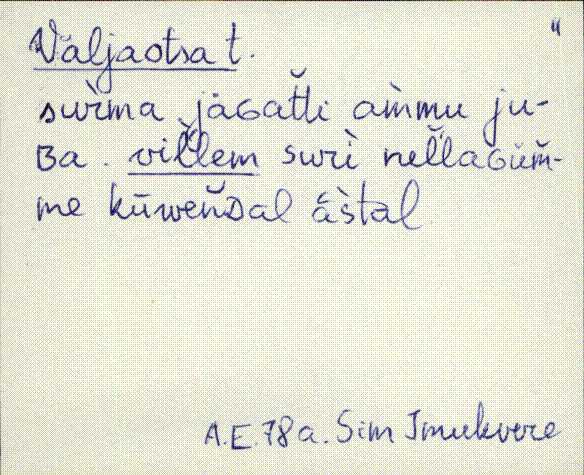 "
Väljaotsa t.
sur̀ma jäGat̆ti am̀mu ju-
Ba. vil̆lem suri̇̀ nel̆laGüm̆-
me kūwen̆Dal ās̀tal
A.E.78a. Sim Imukvere